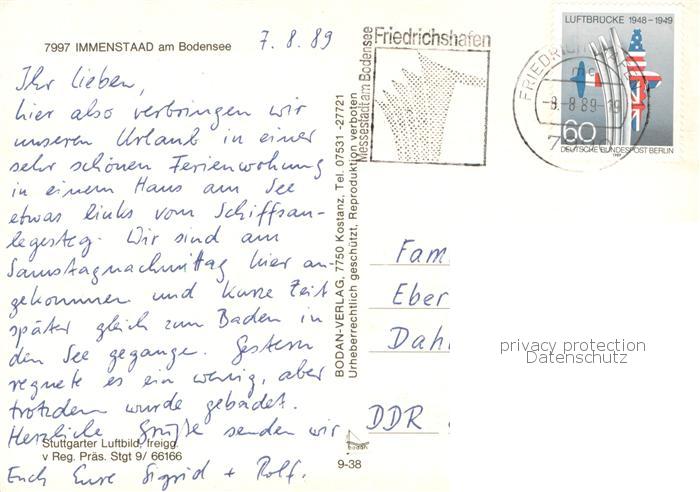 7997 IMMENSTAAD am Bodensee
7.8.89
Ihr Lieben,
hier also verbringen wir
unseren Urlaub in einer
sehr schönen Ferienwohnung
in einem Haus am See
etwas links vom Schiffsan-
legesteg. Wir sind am
Samstagnachmittag hier an
gekommen und kurze Zeit
später gleich zum Baden in
den See gegange. Gestern
regnete es ein wenig, aber
trotzdem wurde gebadet.
Herzliche Grüße senden wir
Euch Eure Sigrid + Rolf.
Stuttgarter Luftbild, freigg.
v Reg. Präs. Stgt 9/ 66166
BODAN-VERLAG, 7750 Kostanz, Tel. 07531 -27721
Urheberrechtlich geschützt, Reproduktion verboten
bodan
9-38
Friedrichshafen
Messestadt am Bodensee
LUFTBRÜCKE 1948-1949
60
DEUTSCHE BUNDESPOST BERLIN
FRIEDRICH
mc
-8.-8.89-19
7
Fam
Eber
Dahl
DDR
privacy protection
Datenschutz